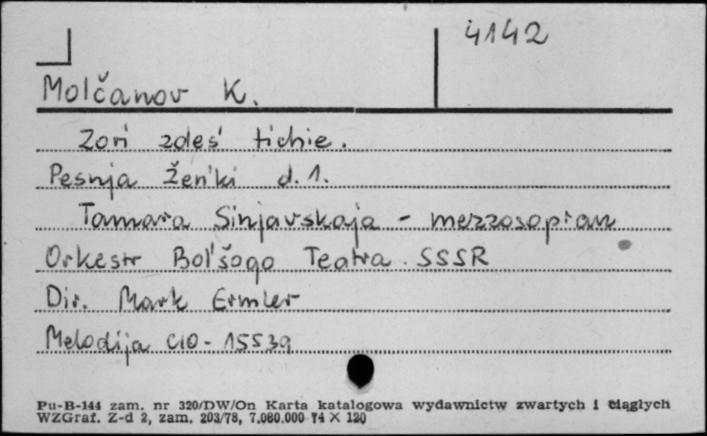 4142
Molčanov K.
Zori zdes' tichie.
Pesnja Žen'ki d. 1.
Tamara Sinjavskaja - mezzosopran
Orkestr Bol'šogo Teatra SSSR
Dir. Mark Ermler
Melodija C10-15539
Pu-B-144 zam. nr 320/DW/On Karta katalogowa wydawnictw zwartych i ciągłych
WZGraf. Z-d 2, zam. 203/78, 7.080.000 74 X 120